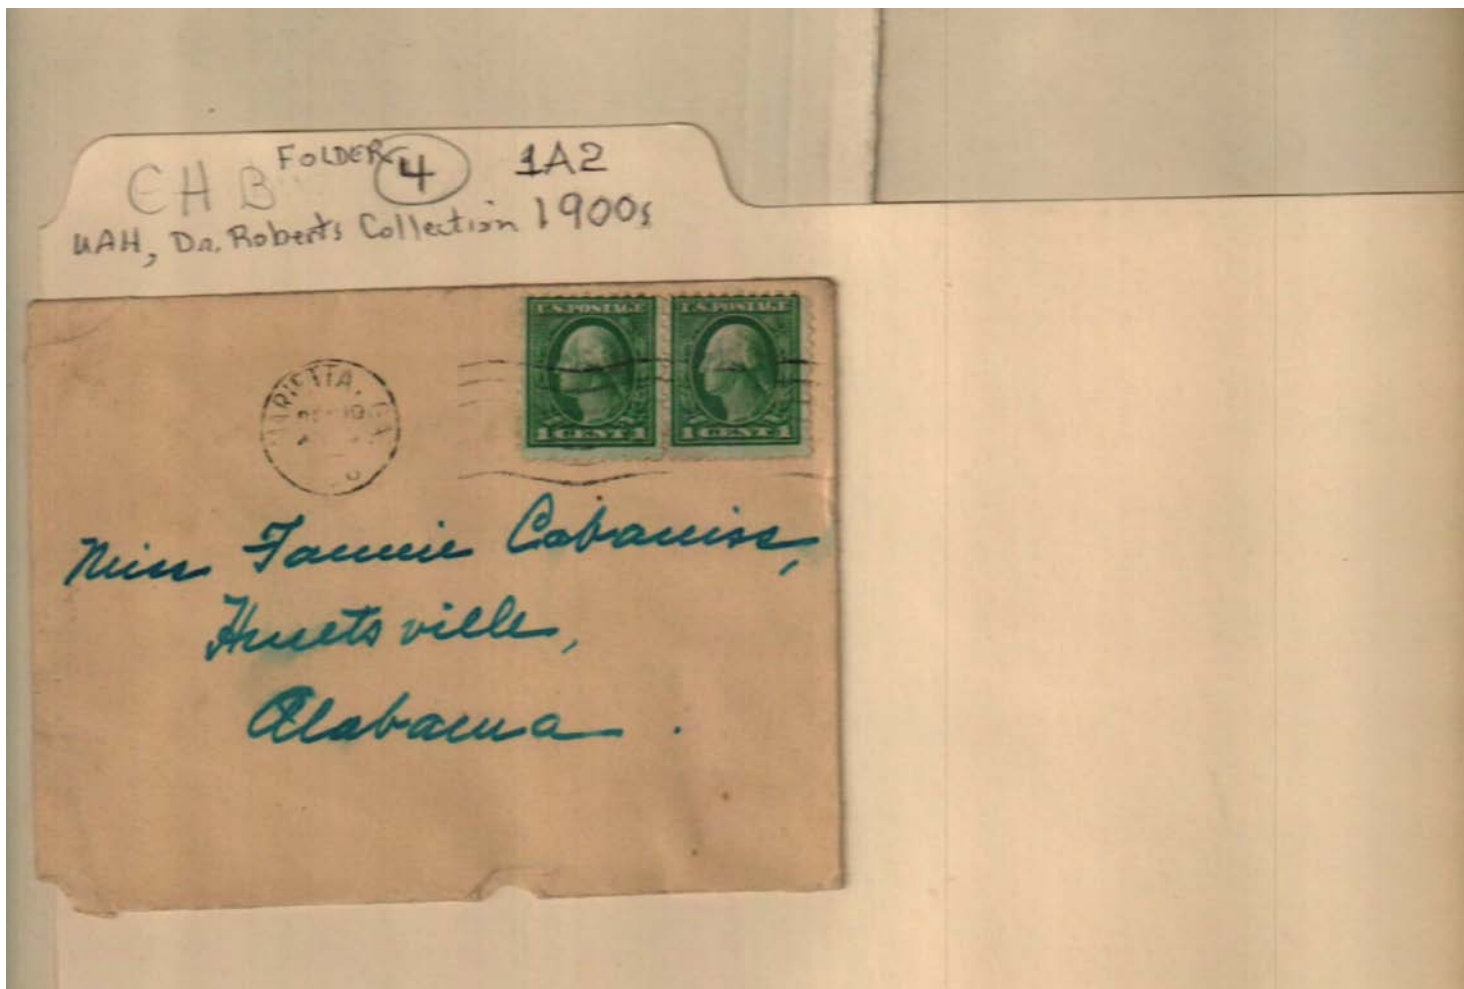 FOLDER 4 1A2
EHB
UAH, Dr. Roberts Collection 1900s
U.S. POSTAGE U.S. POSTAGE
1 CENT 1 1 CENT 1
MARIETTA, GA.
Miss Fannie Cabaniss,
Huntsville,
Alabama.